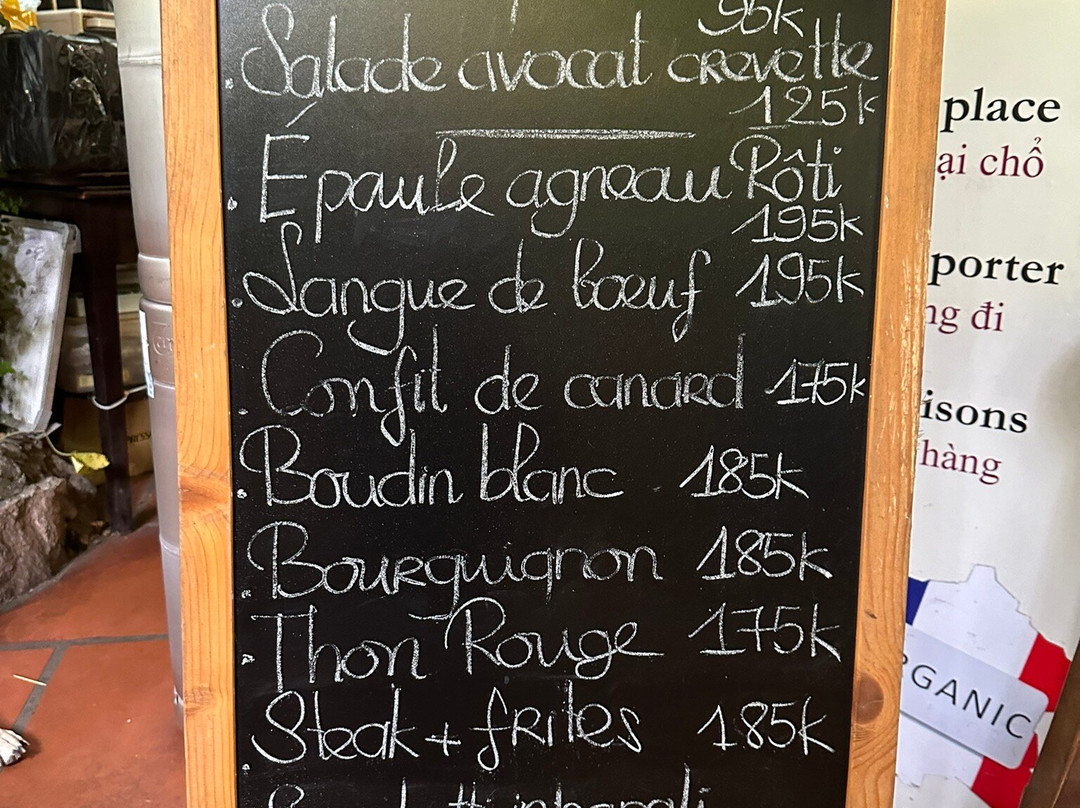 95k
. Salade avocat crevette
125k
. Épaule agneau Rôti
195k
. Langue de bœuf 195k
. Confit de canard 175k
. Boudin blanc 185k
. Bourguignon 185k
. Thon Rouge 175k
. Steak + frites 185k
place
ại chổ
porter
ng đi
isons
hàng
RGANIC